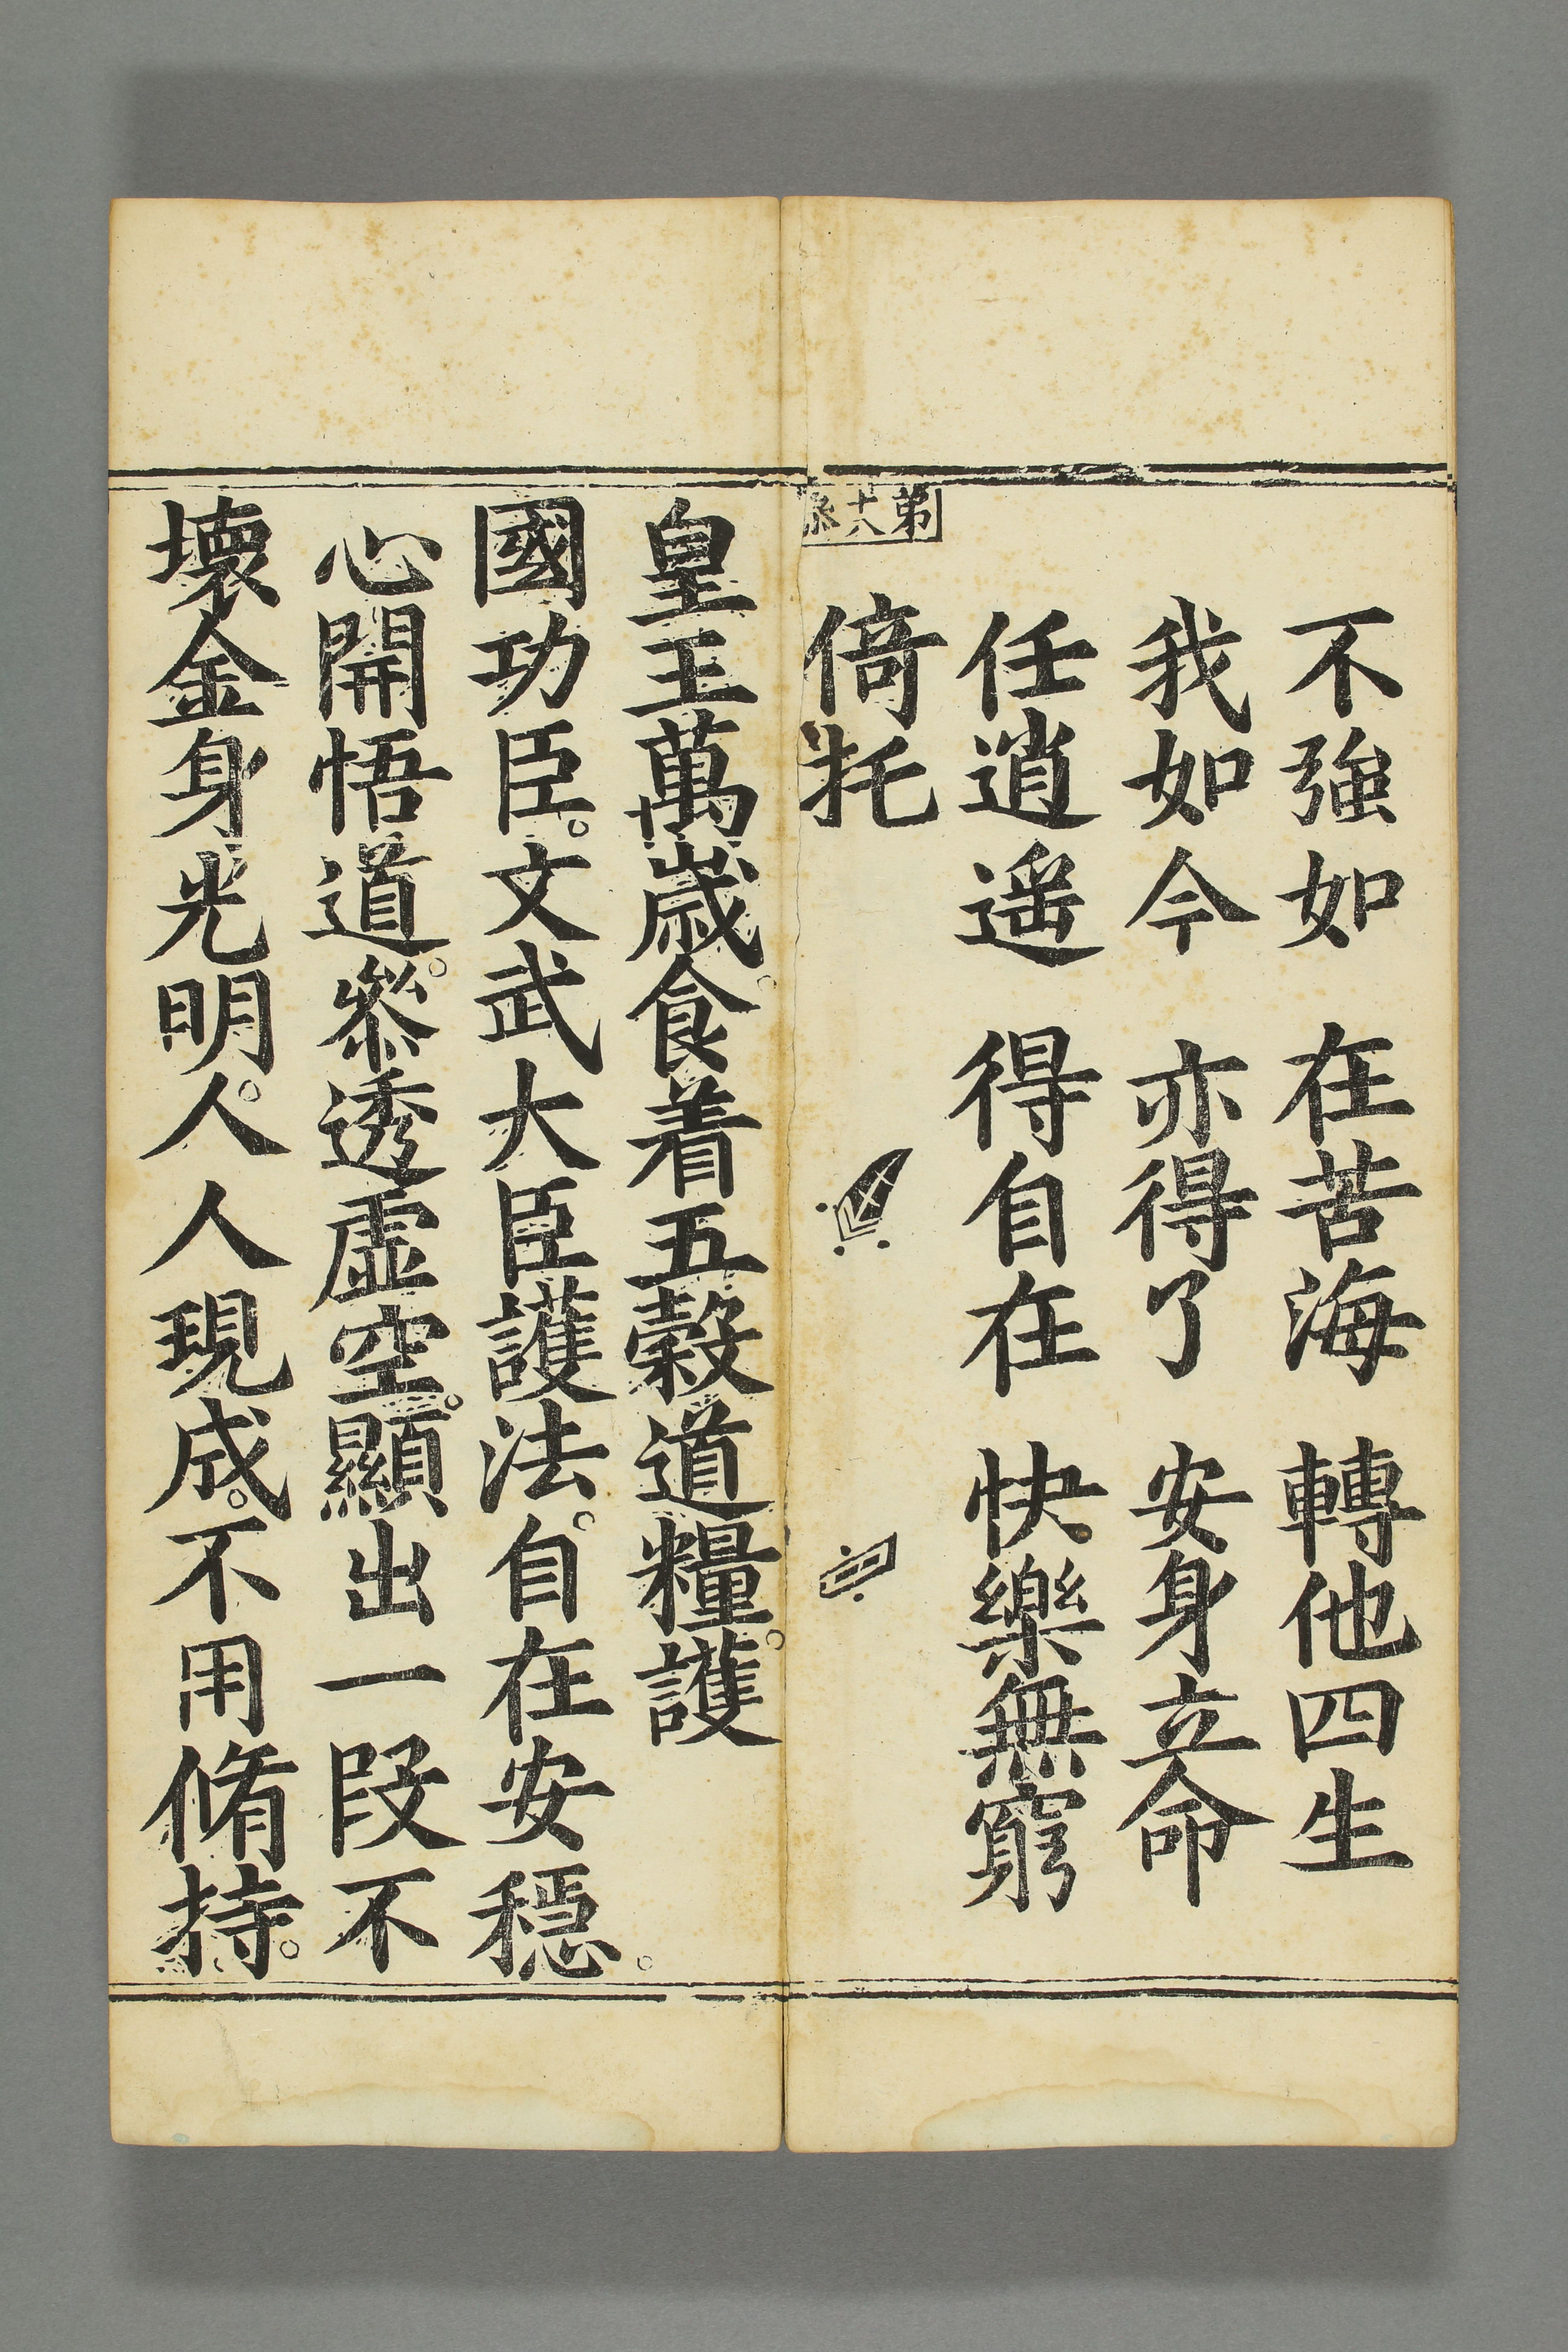 不強如 在苦海 轉他四生
我如今 亦得了 安身立命
任逍遥 得自在 快樂無窮
第十八
倚托
皇王萬歲。食着五穀道糧。護
國功臣。文武大臣護法。自在安穩。
心開悟道。叅透虛空。顯出一段不
壞金身光明。人人現成。不用脩持。